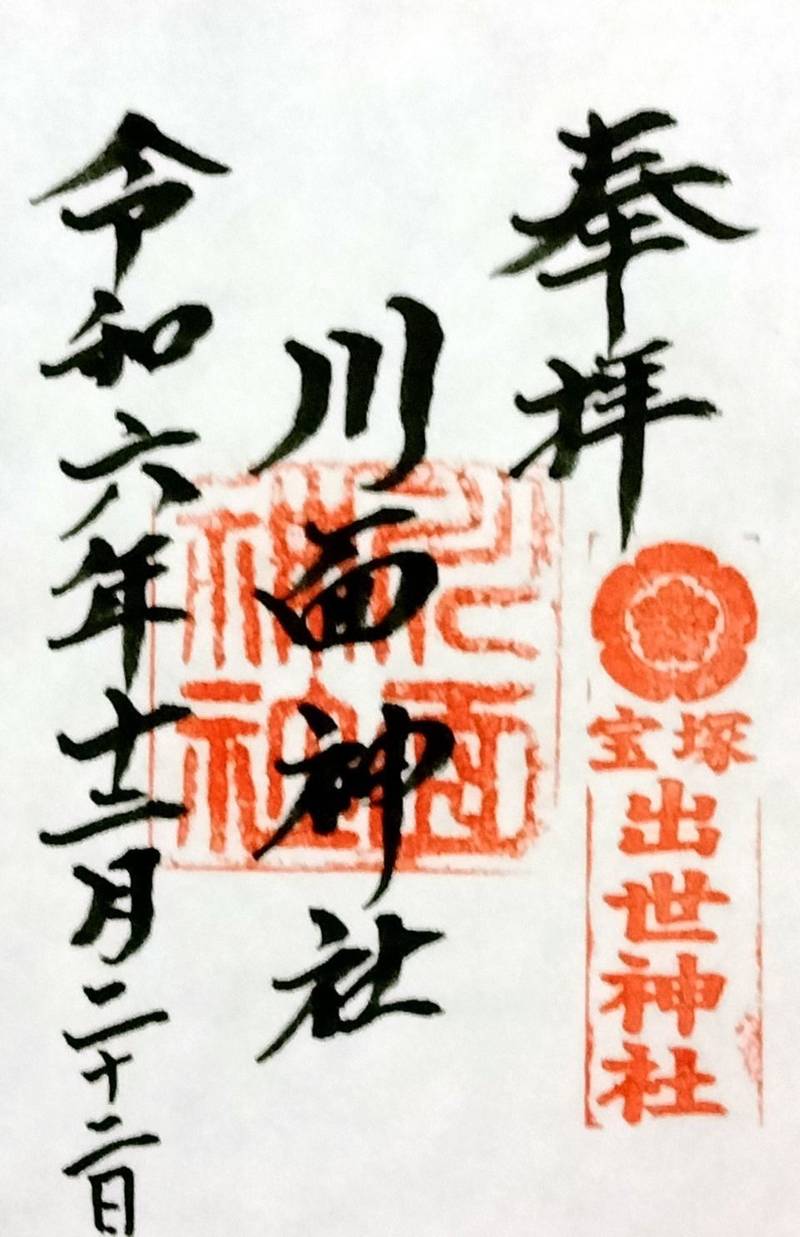 奉拝
宝塚
出世神社
川面神社
川面神社
令和六年十二月二十二日